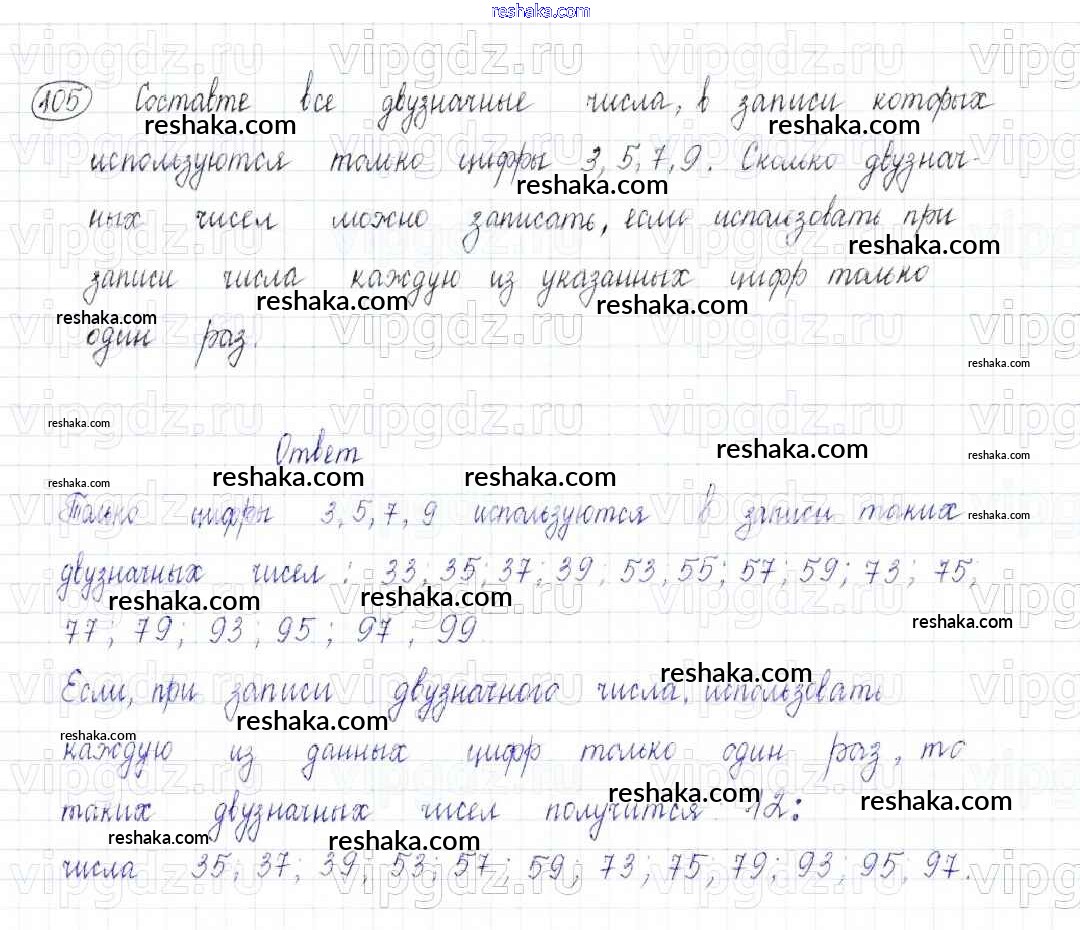 reshaka.com
105 Составте все двузначные числа, в записи которых
reshaka.com reshaka.com
используются только цифры 3, 5, 7, 9. Сколько двузнач-
reshaka.com
ных чисел можно записать, если использовать при
reshaka.com
записи числа каждую из указанных цифр только
reshaka.com reshaka.com
reshaka.com
один раз.
reshaka.com
reshaka.com
Ответ
reshaka.com
reshaka.com
reshaka.com reshaka.com reshaka.com
Только цифры 3, 5, 7, 9 используются в записи таких
reshaka.com
двузначных чисел: 33; 35; 37; 39; 53; 55; 57; 59; 73; 75;
reshaka.com reshaka.com
77; 79; 93; 95; 97, 99
reshaka.com
Если, при записи двузначного числа, использовать
reshaka.com
reshaka.com
reshaka.com
каждую из данных цифр только один раз, то
reshaka.com reshaka.com
таких двузначных чисел получится 12:
reshaka.com reshaka.com
числа 35; 37; 39; 53; 57; 59; 73; 75; 79; 93; 95, 97.
vipgdz.ru